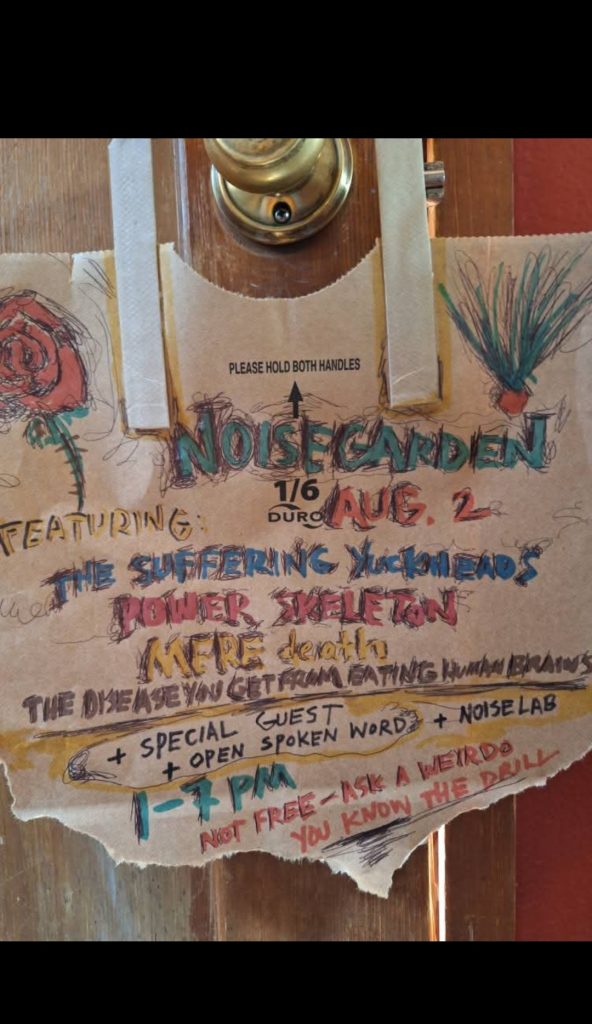 PLEASE HOLD BOTH HANDLES
NOISEGARDEN
1/6
DURO
AUG. 2
FEATURING:
THE SUFFERING YUCKHEADS
POWER SKELETON
MERE death
THE DISEASE YOU GET FROM EATING HUMAN BRAINS
+ SPECIAL GUEST
+ OPEN SPOKEN WORD + NOISELAB
1-7 PM
NOT FREE - ASK A WEIRDO
YOU KNOW THE DRILL